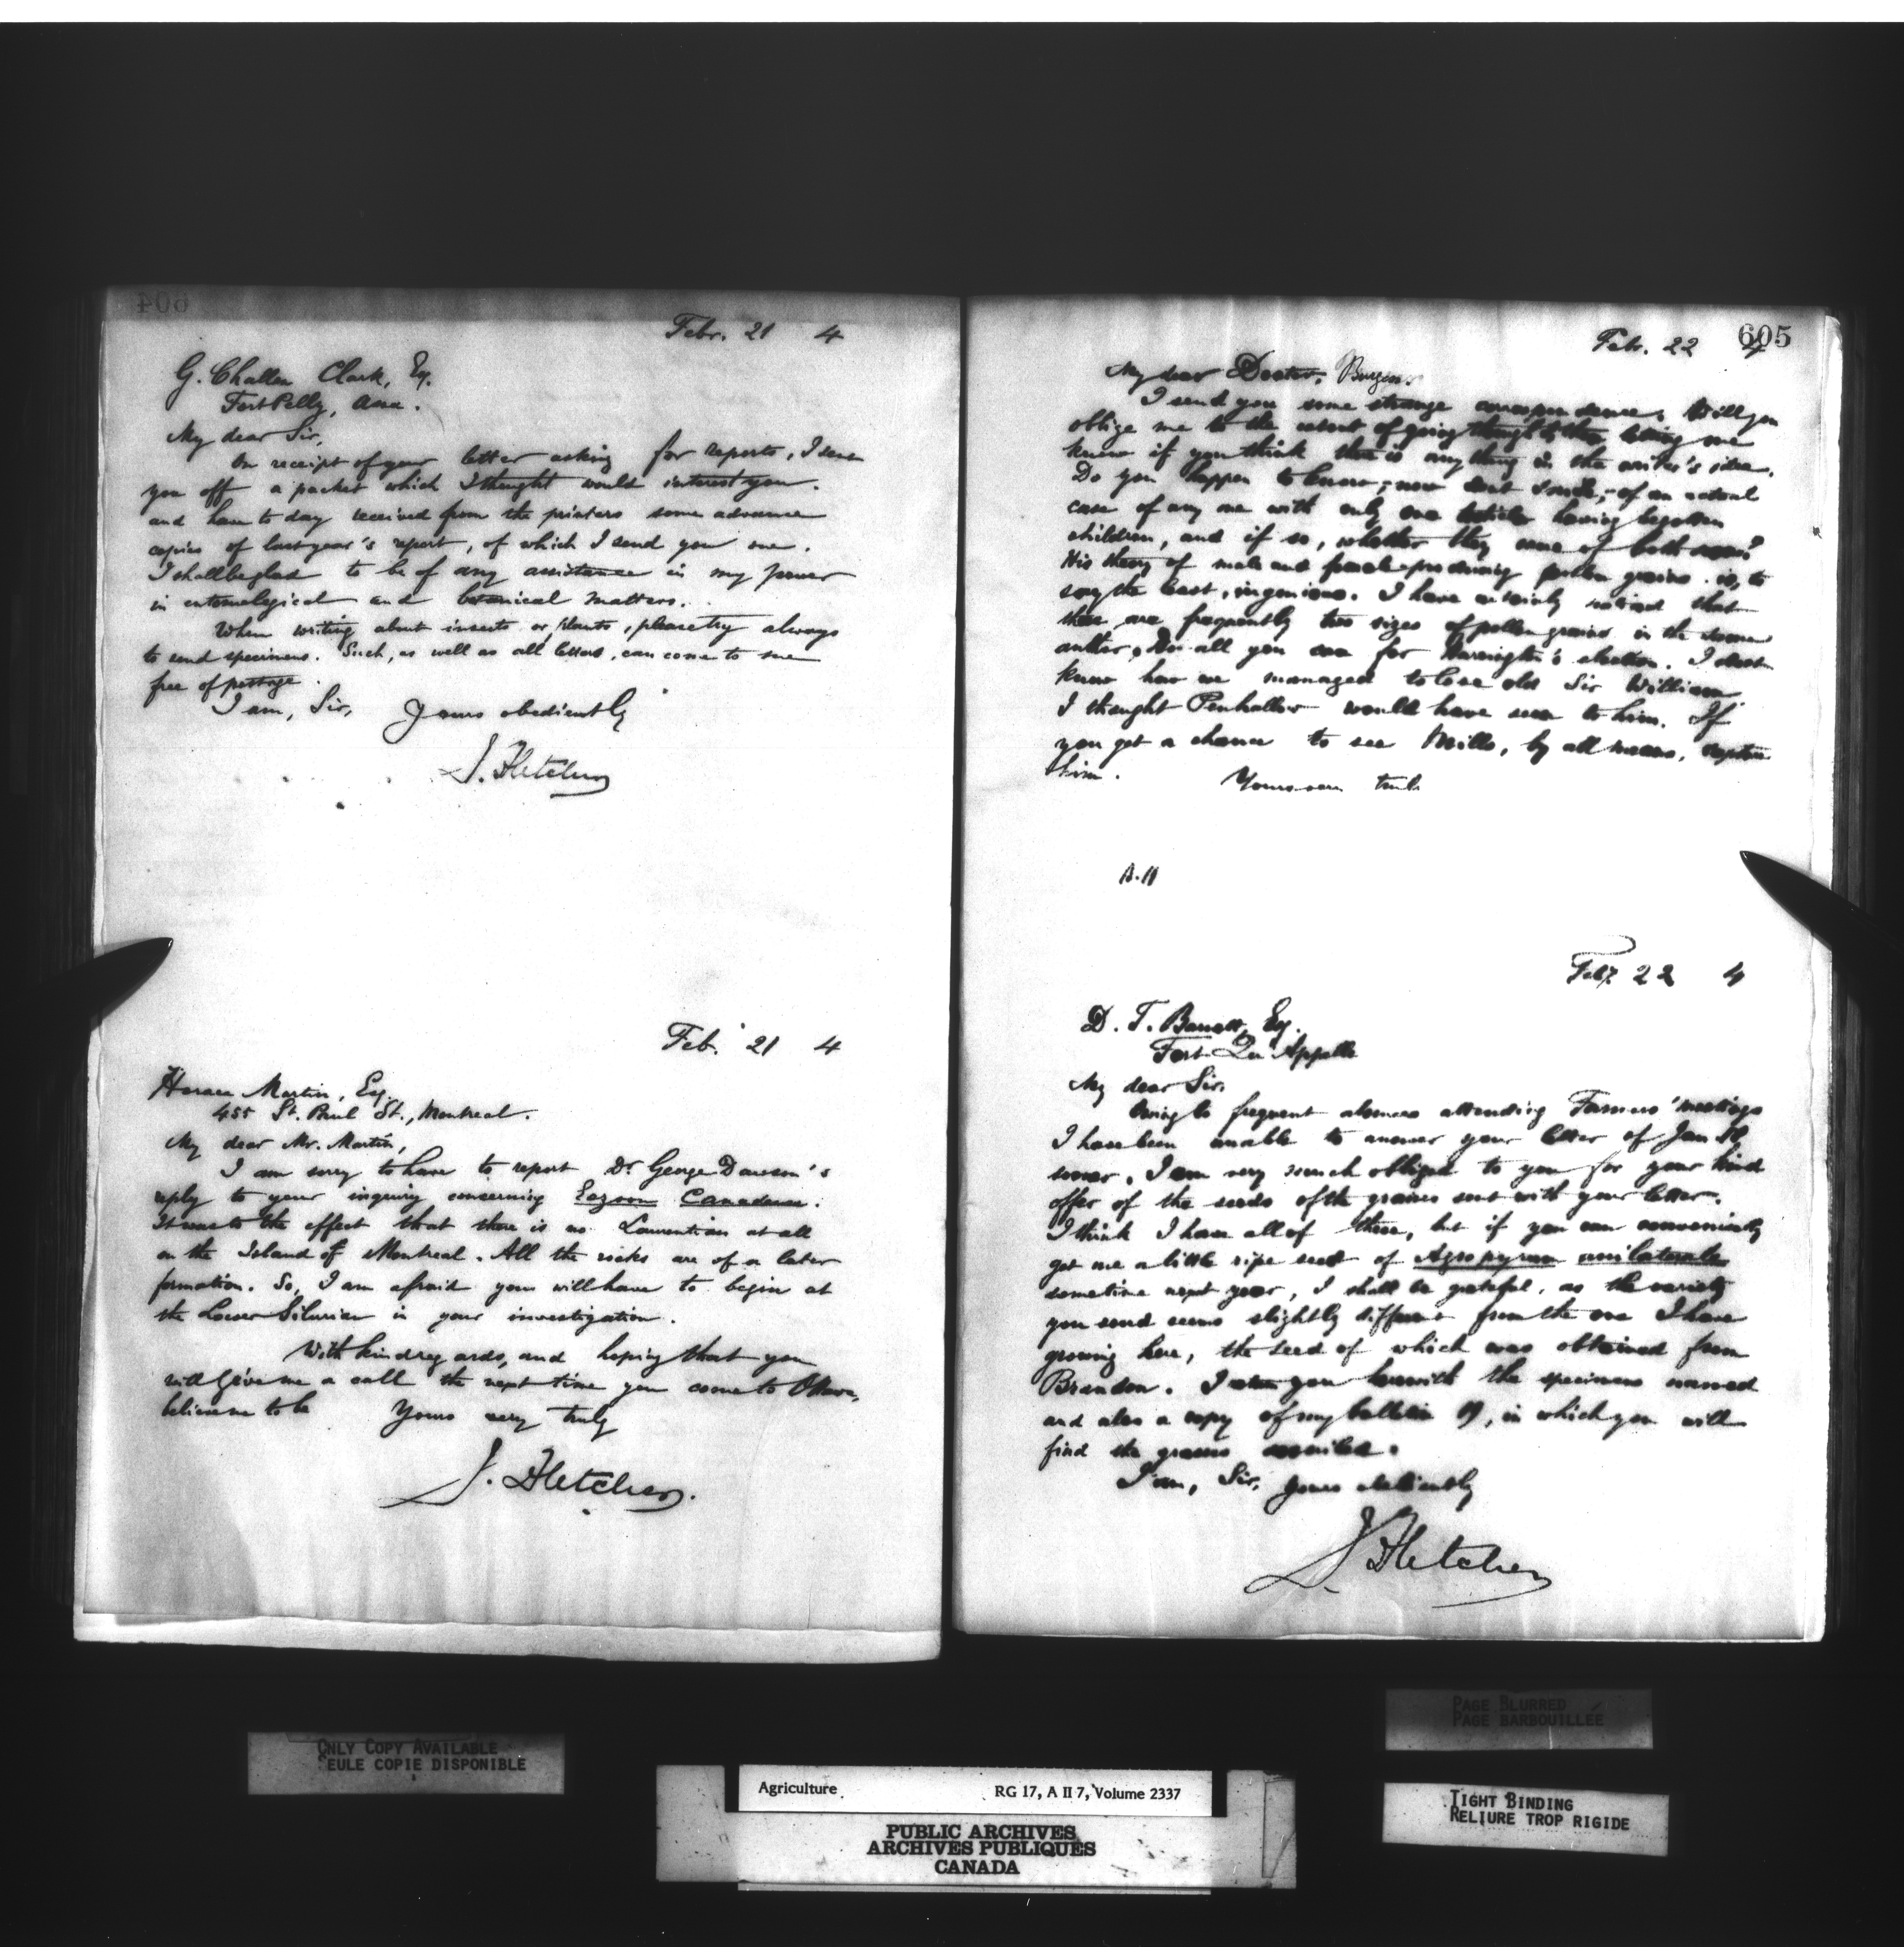 604
Febr. 21 4
G. Challen Clark, Esq.
Fort Pelly, Assa.
My dear Sir,
On receipt of your letter asking for reports, I sent
you off a packet which I thought would interest you.
and have to day received from the printers some advance
copies of last year's report, of which I send you one.
I shall be glad to be of any assistance in my power
in entomological and botanical matters.
When writing about insects or plants, please try always
to send specimens. Such, as well as all letters, can come to me
free of postage.
I am, Sir, Yours obediently
J. Fletcher
Feb. 21 4
Horace Martin, Esq.
455 St. Paul St., Montreal.
My dear Mr. Martin,
I am sorry to have to report Dr George Dawson's
reply to your inquiry concerning Eozoon Canadense.
It was to the effect that there is no Laurentian at all
on the Island of Montreal. All the rocks are of a later
formation. So, I am afraid you will have to begin at
the Lower Silurian in your investigation.
With kind regards, and hoping that you
will give me a call the next time you come to Ottawa,
believe me to be Yours very truly
J. Fletcher.
605
Feb. 22 4
My dear Doctor, Burgess.
I send you some strange correspondence. Will you
oblige me to the extent of going through & then letting me
know if you think there is anything in the writer's idea.
Do you happen to know,- now dont smile,- of an actual
case of any one with only one testicle having begotten
children, and if so, whether they were of both sexes?
His theory of male and female-producing pollen grains is, to
say the least, ingenious. I have certainly noticed that
there are frequently two sizes of pollen grains in the same
anther. Do all you can for Harrington's election. I dont
know how we managed to lose old Sir William
I thought Penhallow would have seen to him. If
you get a chance to see Mills, by all means, capture
him.
Yours very truly
Feby. 22 4
D. T. Barrett, Esq.
Fort Qu'Appelle
My dear Sir,
Owing to frequent absences attending Farmers' meetings
I have been unable to answer your letter of Jan
sooner. I am very much obliged to you for your kind
offer of the seeds of the grasses sent with your letter.
I think I have all of these, but if you can conveniently
get me a little ripe seed of Agropyrum unilaterale
sometime next year, I shall be grateful, as the variety
you send seems slightly different from the one I have
growing here, the seed of which was obtained from
Brandon. I return you herewith the specimens named
and also a copy of my bulletin 19, in which you will
find the grasses
I am, Sir, Yours obediently
J. Fletcher
ONLY COPY AVAILABLE
SEULE COPIE DISPONIBLE
PAGE BLURRED
PAGE BARBOUILLÉE
TIGHT BINDING
RELIURE TROP RIGIDE
Agriculture RG 17, A II 7, Volume 2337
PUBLIC ARCHIVES
ARCHIVES PUBLIQUES
CANADA